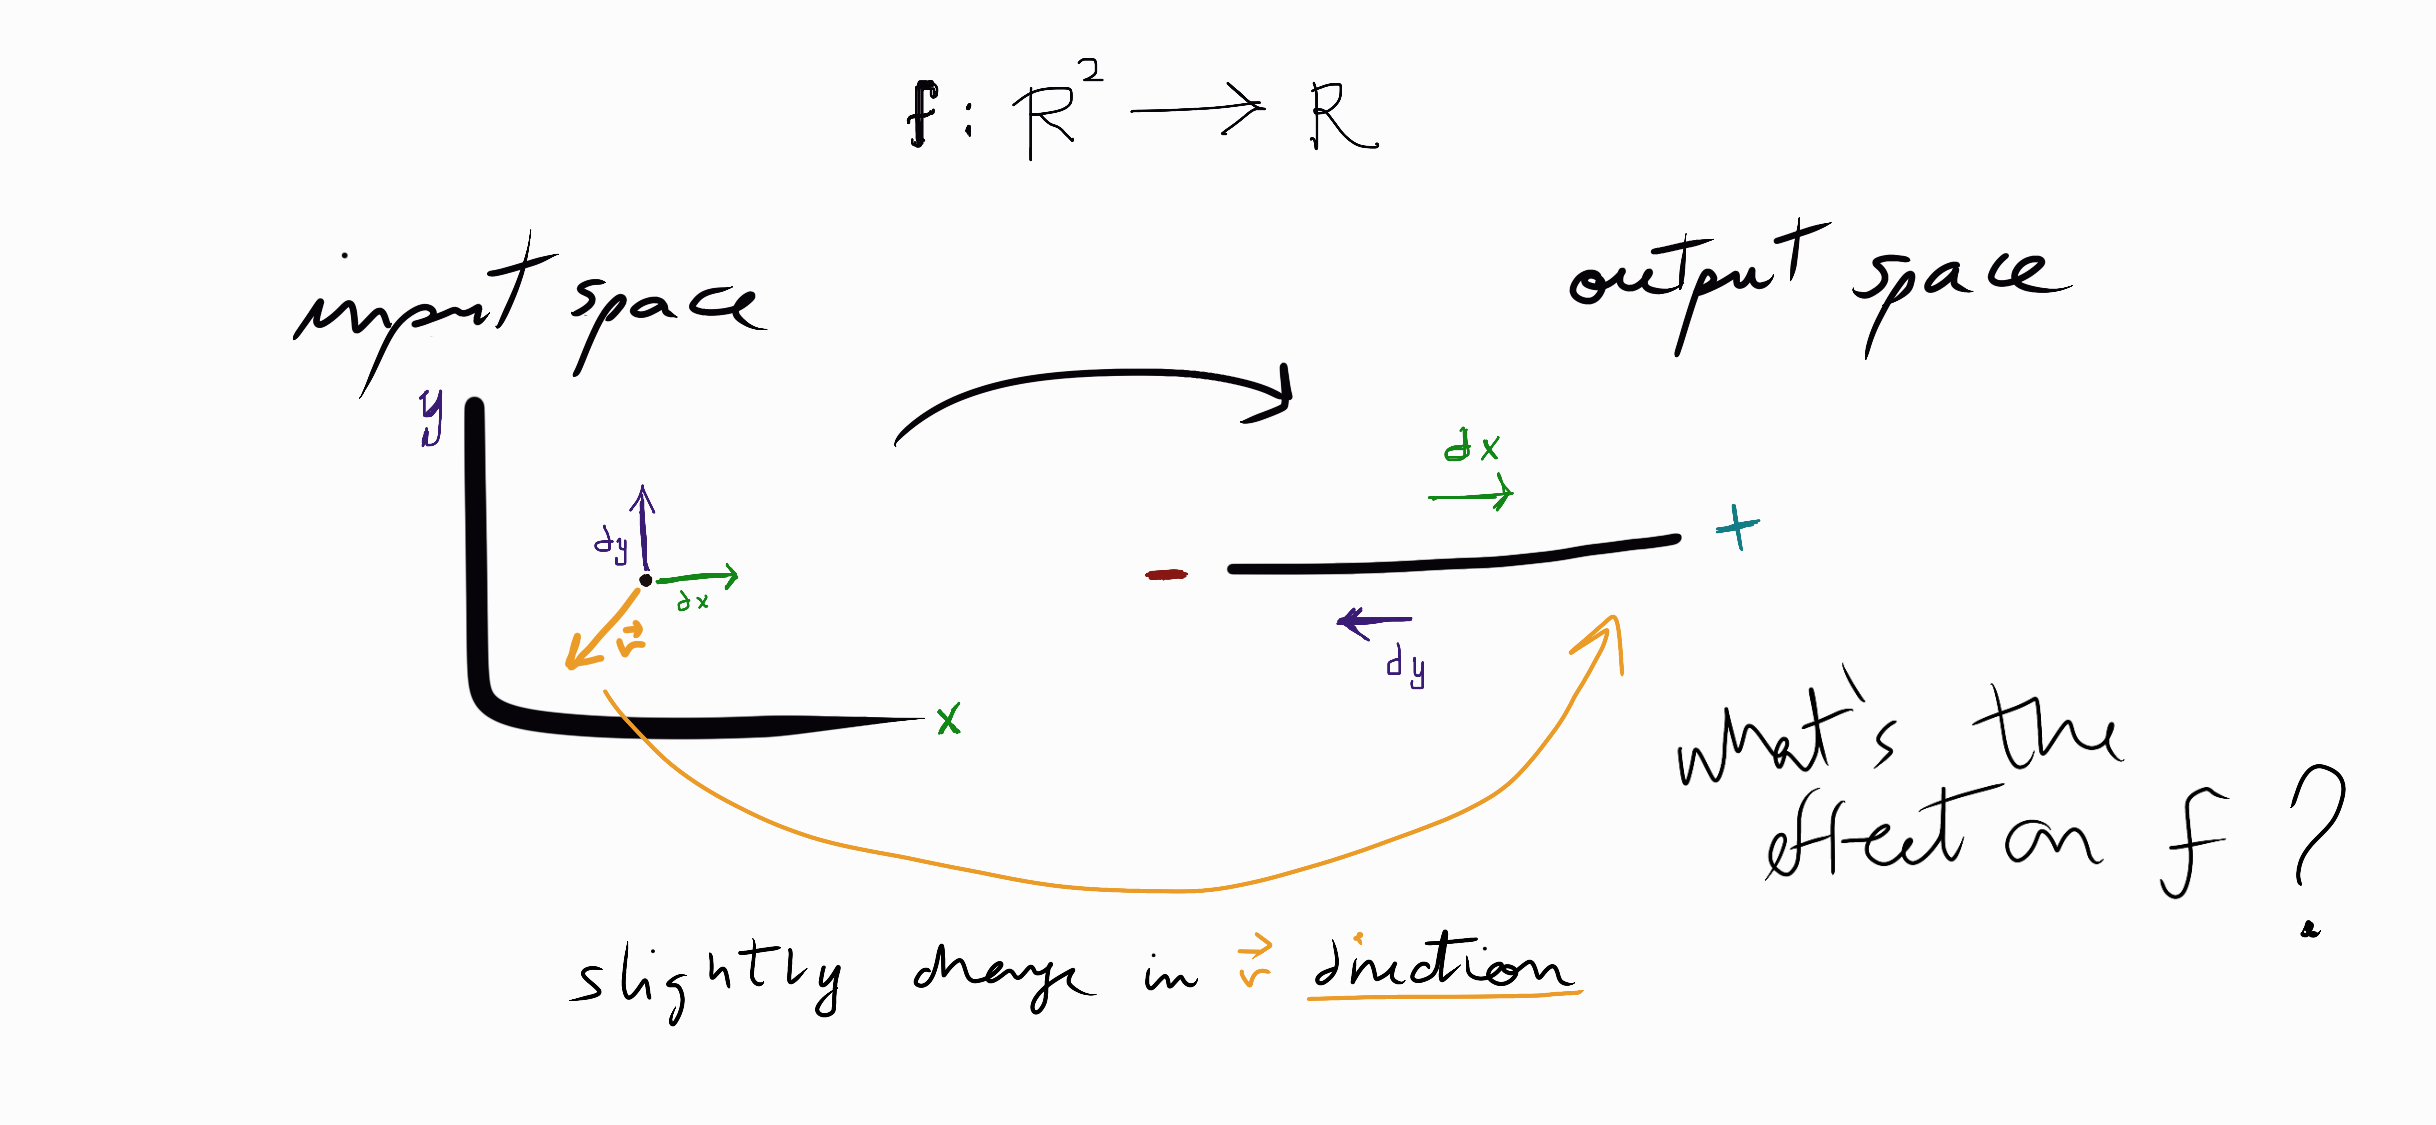 f: R² → R
input space
output space
y
dx
dy
dx
+
-
v
dy
x
what's the
effect on f ?
slightly change in v direction